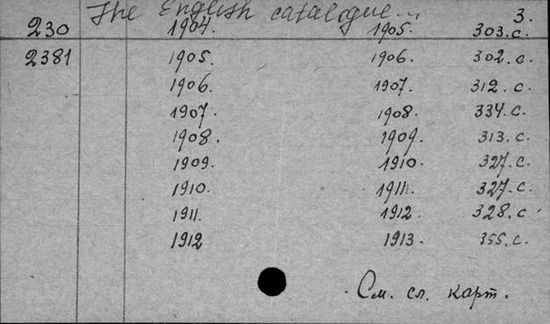 The English catalogue... 3.
230 1904. 1905. 303.с.
2381 1905. 1906. 302.с.
1906. 1907. 312.с.
1907. 1908. 334.с.
1908. 1909. 313.с.
1909. 1910. 327.с.
1910. 1911. 327.с.
1911. 1912. 328.с
1912 1913. 355.с.
См. сл. карт.